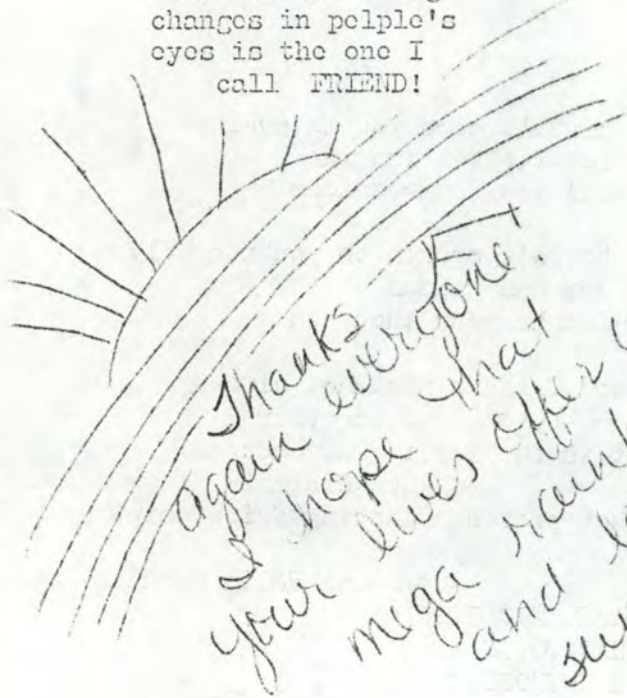 changes in pelple's
eyes is the one I
call FRIEND!
Thanks
again everyone!
I hope that
your lives offer
mega
and